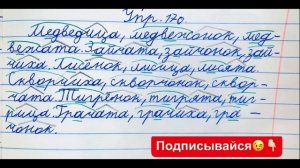 Упр. 170
Медведица, медвежонок, мед-
вежата. Зайчата, зайчонок, зай-
чиха. Лисёнок, лисица, лисята.
Скворчиха, скворчонок, сквор-
чата. Тигрёнок, тигрята, тиг-
рица. Грачата, грачиха, гра-
чонок.
Подписывайся